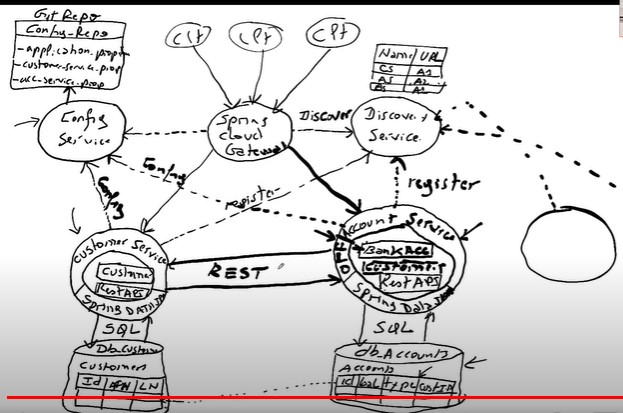 Git Repo
Config-Repo
-application.prop
-customer-service.prop
-acc-service.prop
Clt
Clt
Clt
Name URL
CS A1
AS A2
Config
Service
Spring
Cloud
Gateway
Discover
Discovery
Service
Config
Config
register
register
Customer Service
Customer
Rest API
Spring DATA
REST
Account Service
Bank Acc
Customer
Rest API
Spring Data
SQL
SQL
Db_Custom
Customers
Id LN
db_Accounts
Accounts
id bal type custID